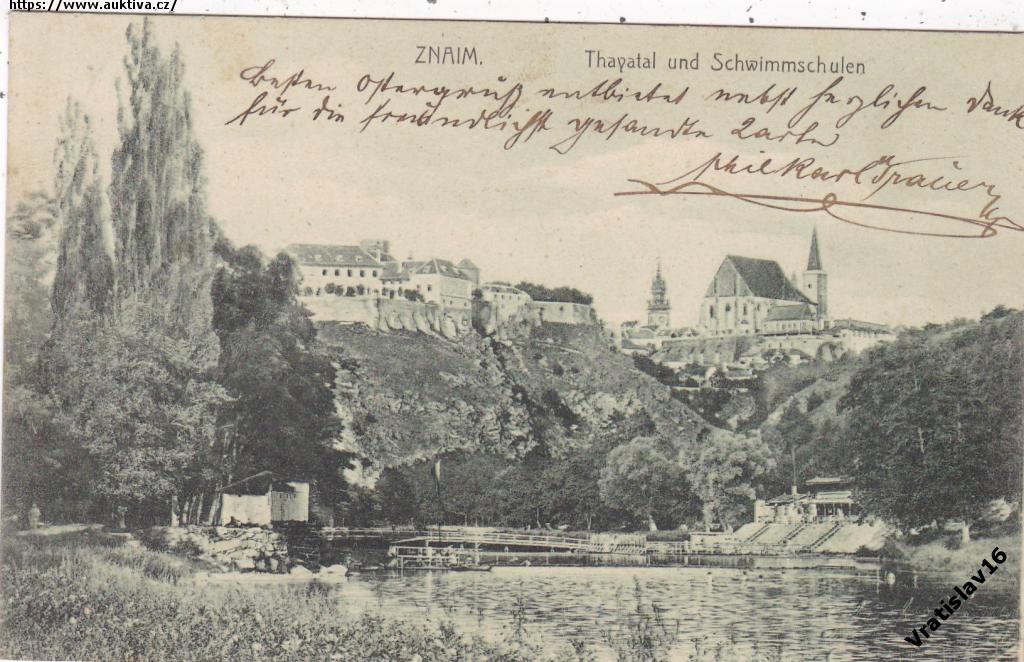 https://www.auktiva.cz/
ZNAIM. Thayatal und Schwimmschulen
Besten Ostergruß entbietet nebst herzlichen Dank
für die freundlichst gesandte Karte
Karl Trauer
Vratislav16